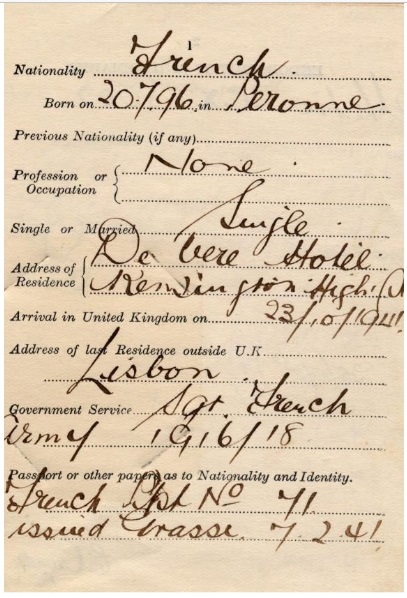 Nationality French.
Born on 20/7/96, in Peronne.
Previous Nationality (if any)
Profession or Occupation None
Single or Married Single
Address of Residence De Vere Hotel
Kensington High
Arrival in United Kingdom on 23/10/1941
Address of last Residence outside U.K.
Lisbon
Government Service Sgt. French
Army 1916/18
Passport or other papers as to Nationality and Identity.
French Ppt No 71
issued Grasse. 7.2.41